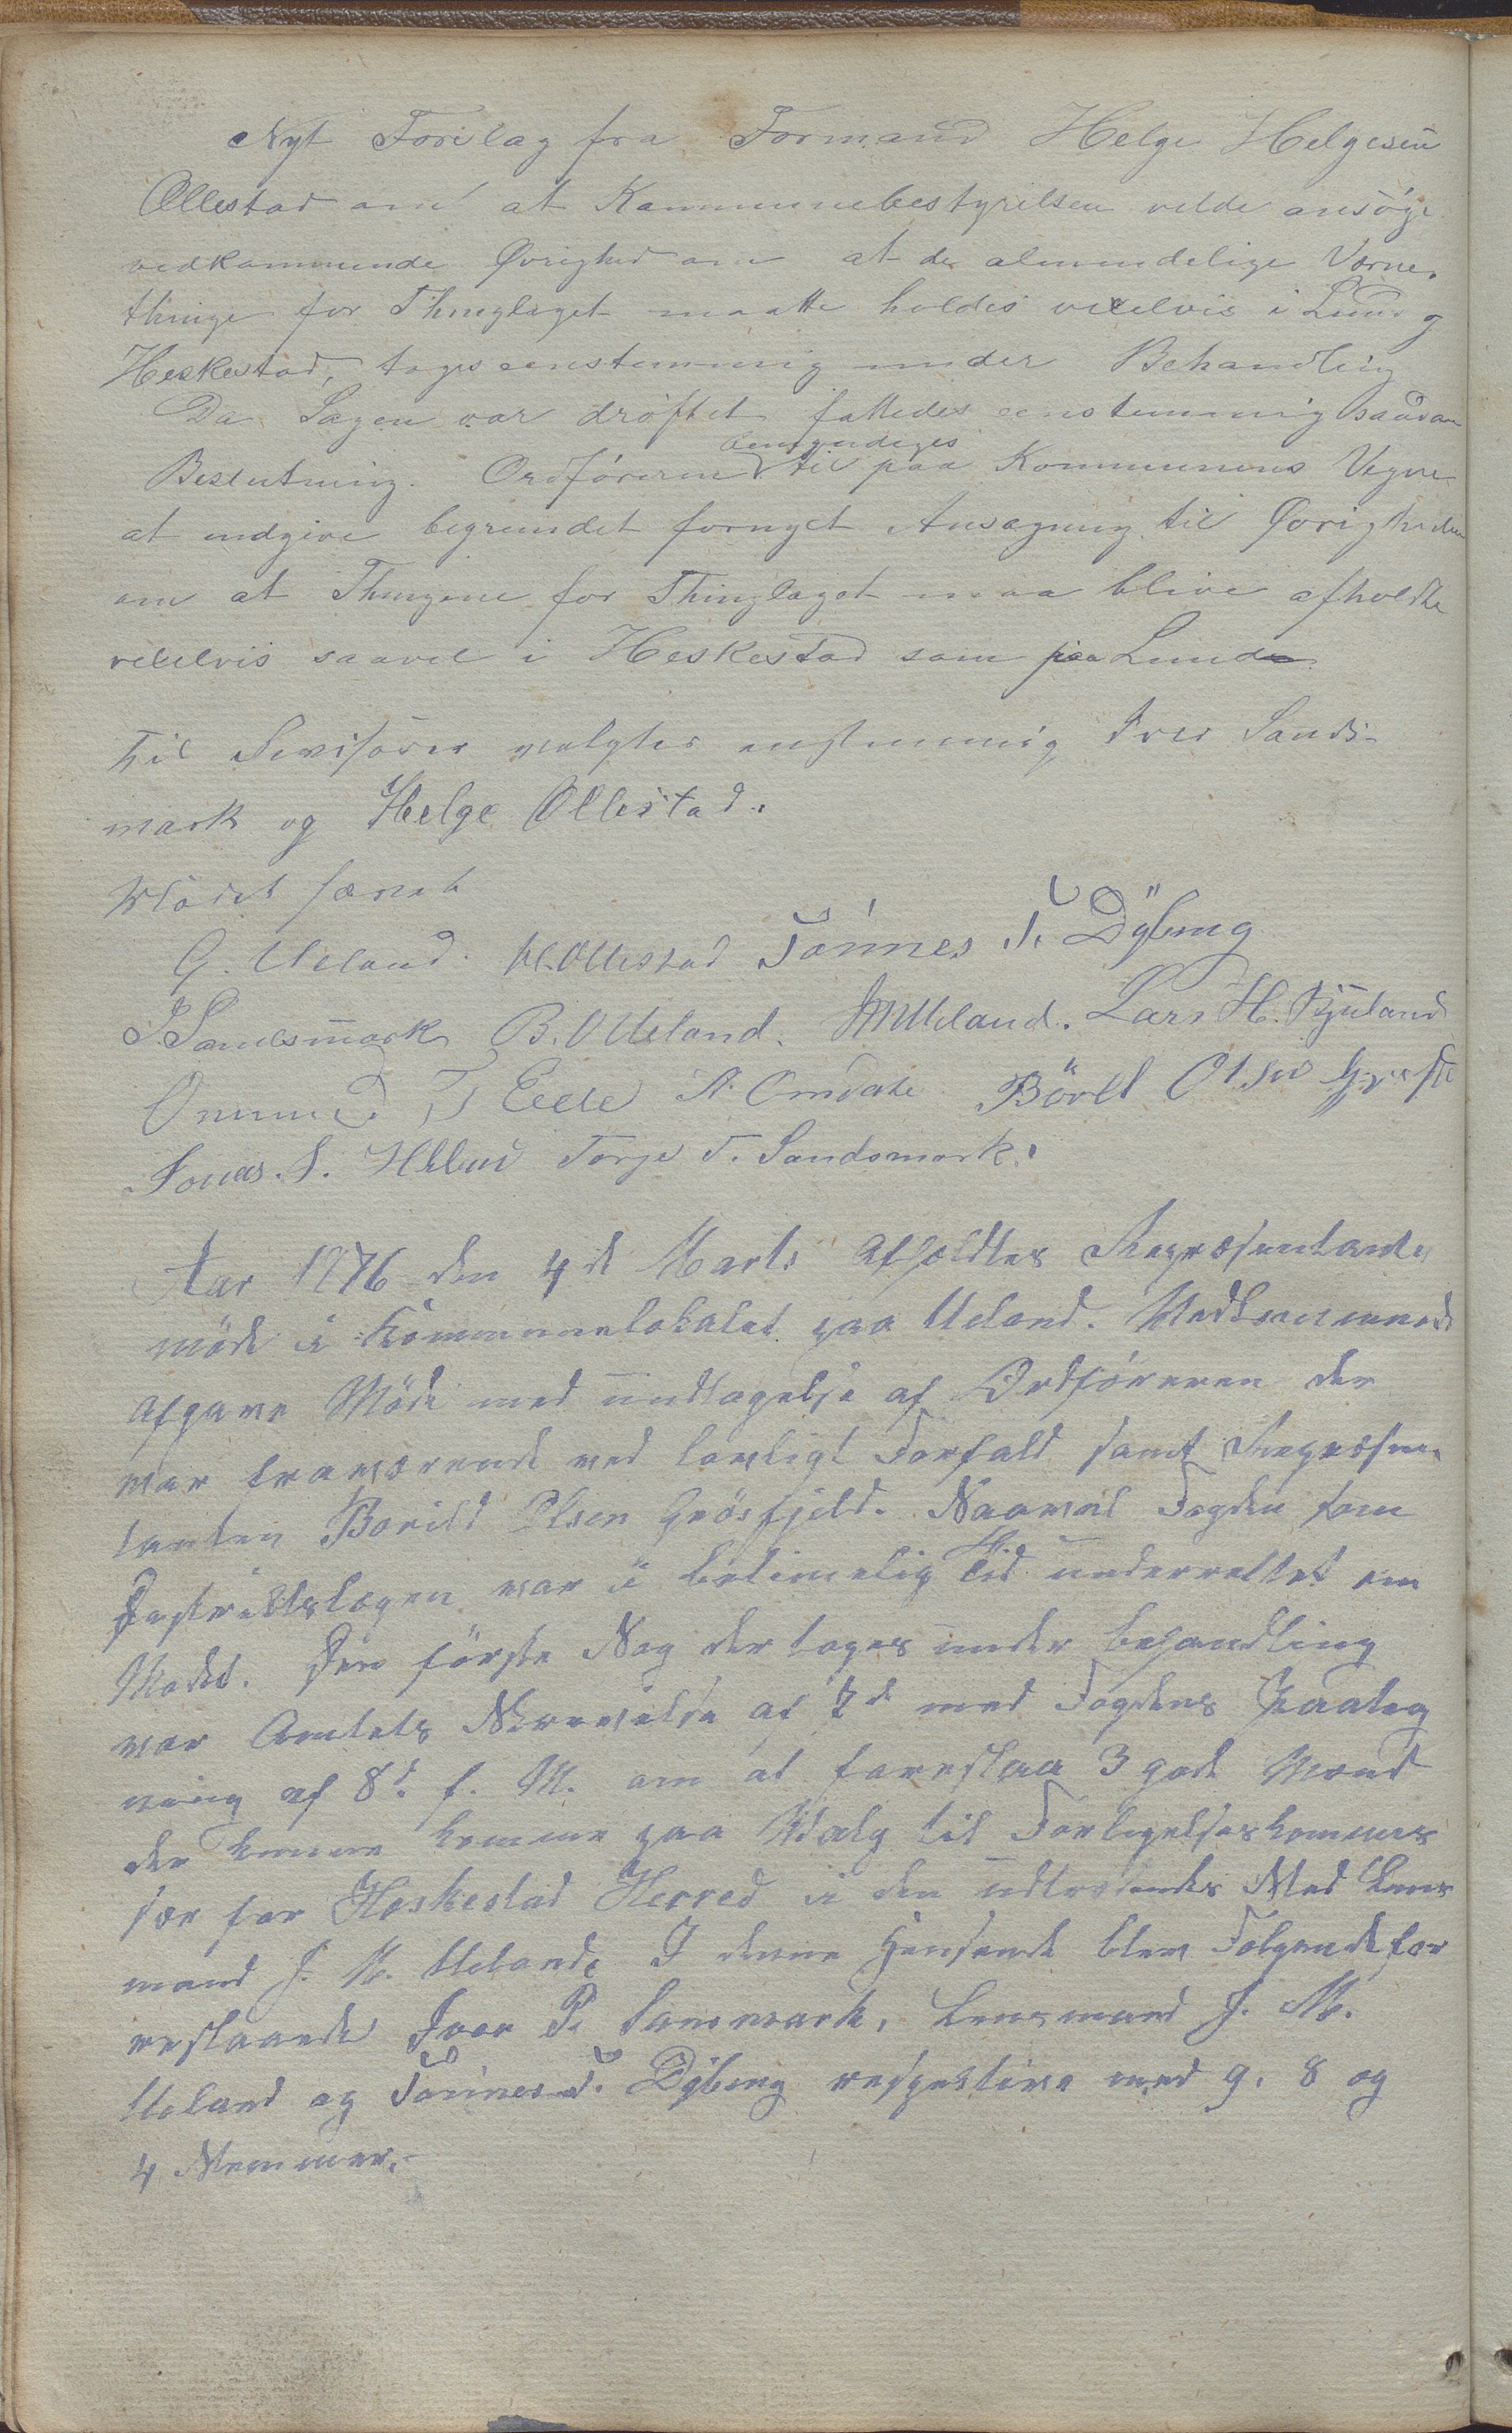 Nyt Forslag fra Formand Helge Helgesen
Ollestad om at Kommunebestyrelsen vilde ansøge
vedkommende Øvrighed om at de almindelige Vaarne-
thinge for Thinglaget maatte holdes vexelvis i Lund og
Heskestad, toges eenstemmig under Behandling
Da Sagen var drøftet fattedes eenstemmig saadan
Beslutning. Ordføreren bemyndiges til paa Kommunens Vegne
at indgive begrundet fornyet Ansøgning til Øvrigheden
om at Thingene for Thinglaget maa blive afholdte
vexelvis saavel i Heskestad som paa Lund
Til Revisorer valgtes enstemmig Iver Sands-
mark og Helge Ollestad.
Mödet hævet
G. Ueland. H. Ollestad Tönnes T. Dÿbing
I. Sandsmark B. O Ueland. J M Ueland. Lars H. Skjuland
Ommund T Eede A. Omdahl Börel Olsen
Jonas. S. Torje T. Sandsmark.
Aar 1876 den 4de Marts afholdtes Repræsentant-
möde i Kommunelokalet paa Ueland. Medlemmerne
afgave Möde med undtagelse af Ordföreren der
var fraværende ved lovligt Forfald samt Repræsen-
tanten Borild Olsen Grösfjeld. Saavel Fogden som
Destriktslægen var i betimelig Tid underrettet om
Mødet. Den förste Sag der toges under behandling
var Amtets Skrivelse af 7de med Fogdens Paateg
ning af 8d. f. M. om at foreslaa 3 gode Mænd
der kunne komme paa Valg til Forligelseskommis
sær for Heskestad Herred i den udtrædendes Sted Lens
mand J. M. Ueland. I denne Henseende blev Følgende for
reslaaede Iver P. Sansmark, Lensmand J. M.
Ueland og Tönnes T. Dÿbing respektive med 9. 8 og
4 Stemmer.-